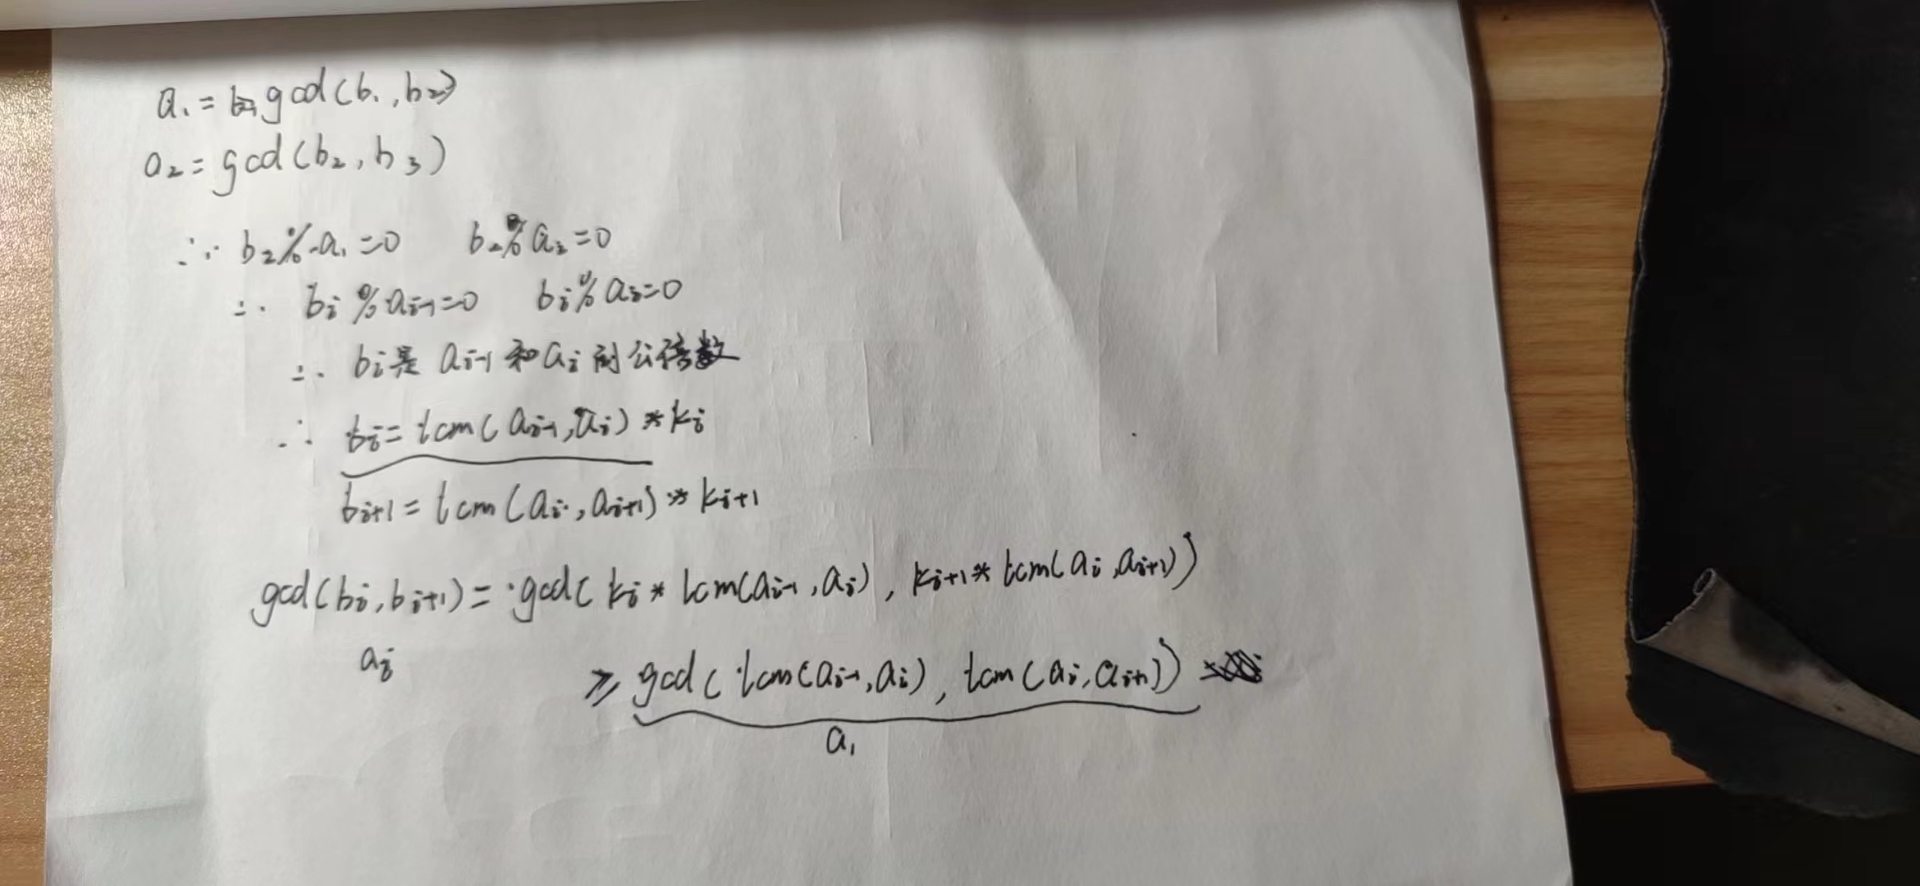 a₁=gcd(b₁,b₂)
a₂=gcd(b₂,b₃)
∵ b₂%a₁=0 b₂%a₂=0
∴ bᵢ%aᵢ₋₁=0 bᵢ%aᵢ=0
∴ bᵢ是aᵢ₋₁和aᵢ的公倍数
∴ bᵢ=lcm(aᵢ₋₁,aᵢ)*kᵢ
bᵢ₊₁=lcm(aᵢ,aᵢ₊₁)*kᵢ₊₁
gcd(bᵢ,bᵢ₊₁)=gcd(kᵢ*lcm(aᵢ₋₁,aᵢ),kᵢ₊₁*lcm(aᵢ,aᵢ₊₁))
aᵢ ≥gcd(lcm(aᵢ₋₁,aᵢ),lcm(aᵢ,aᵢ₊₁))
a₁